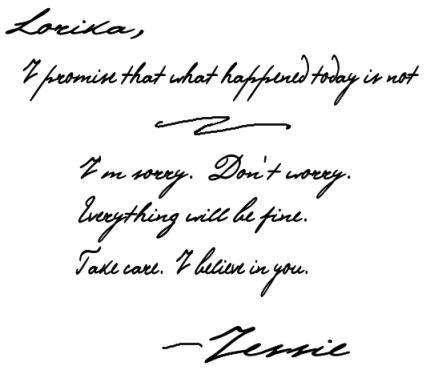 Lorika,
I promise that what happened today is not
I'm sorry. Don't worry.
Everything will be fine.
Take care. I believe in you.
—Zessie